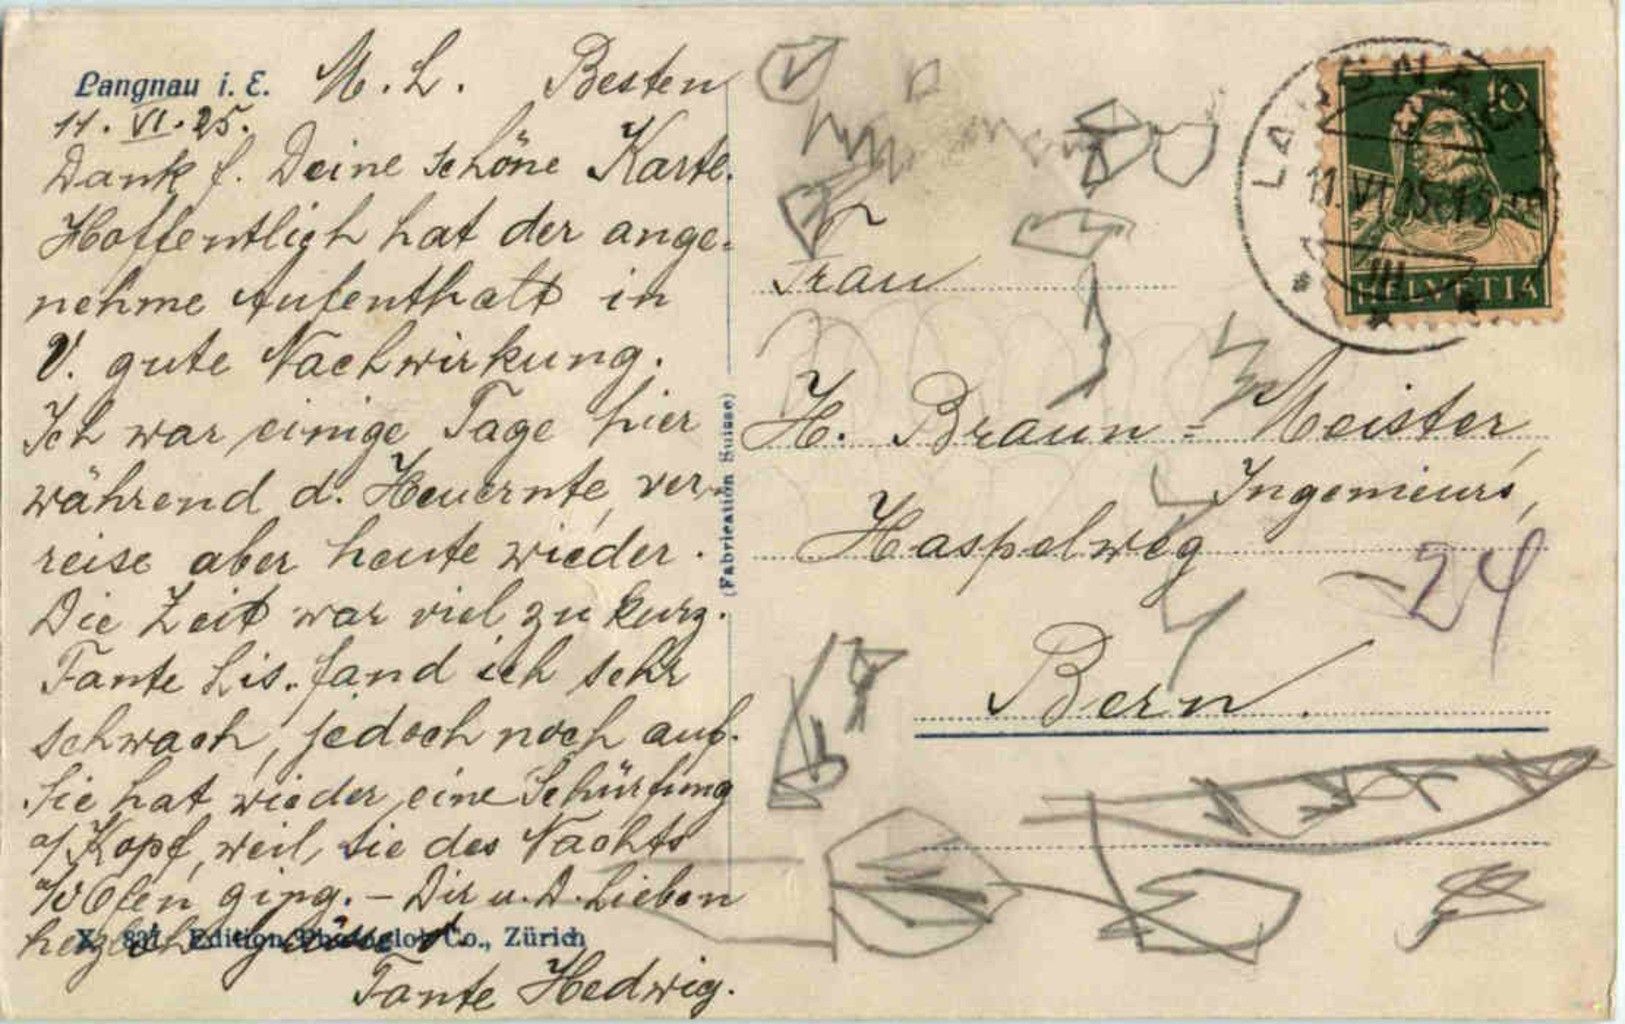 Langnau i. E.
M. L. Besten
11. VI. 25.
Dank f. Deine schöne Karte.
Hoffentlich hat der ange-
nehme Aufenthalt in
V. gute Nachwirkung.
Ich war einige Tage hier
während d. Heuernte, ver-
reise aber heute wieder.
Die Zeit war viel zu kurz.
Tante Lis. fand ich sehr
schwach, jedoch noch auf.
Sie hat wieder eine Schürfung
a/ Kopf, weil sie des Nachts
Ofen ging. – Dir u. D. Lieben
herzlich grüsst
X 831 Edition Photoglob Co., Zürich
Tante Hedwig.
(Fabrication Suisse)
Frau
H. Braun-Meister
Ingenieurs,
Haspelweg
24
Bern.
LANGNAU
11.VI.25.12
III
10
HELVETIA